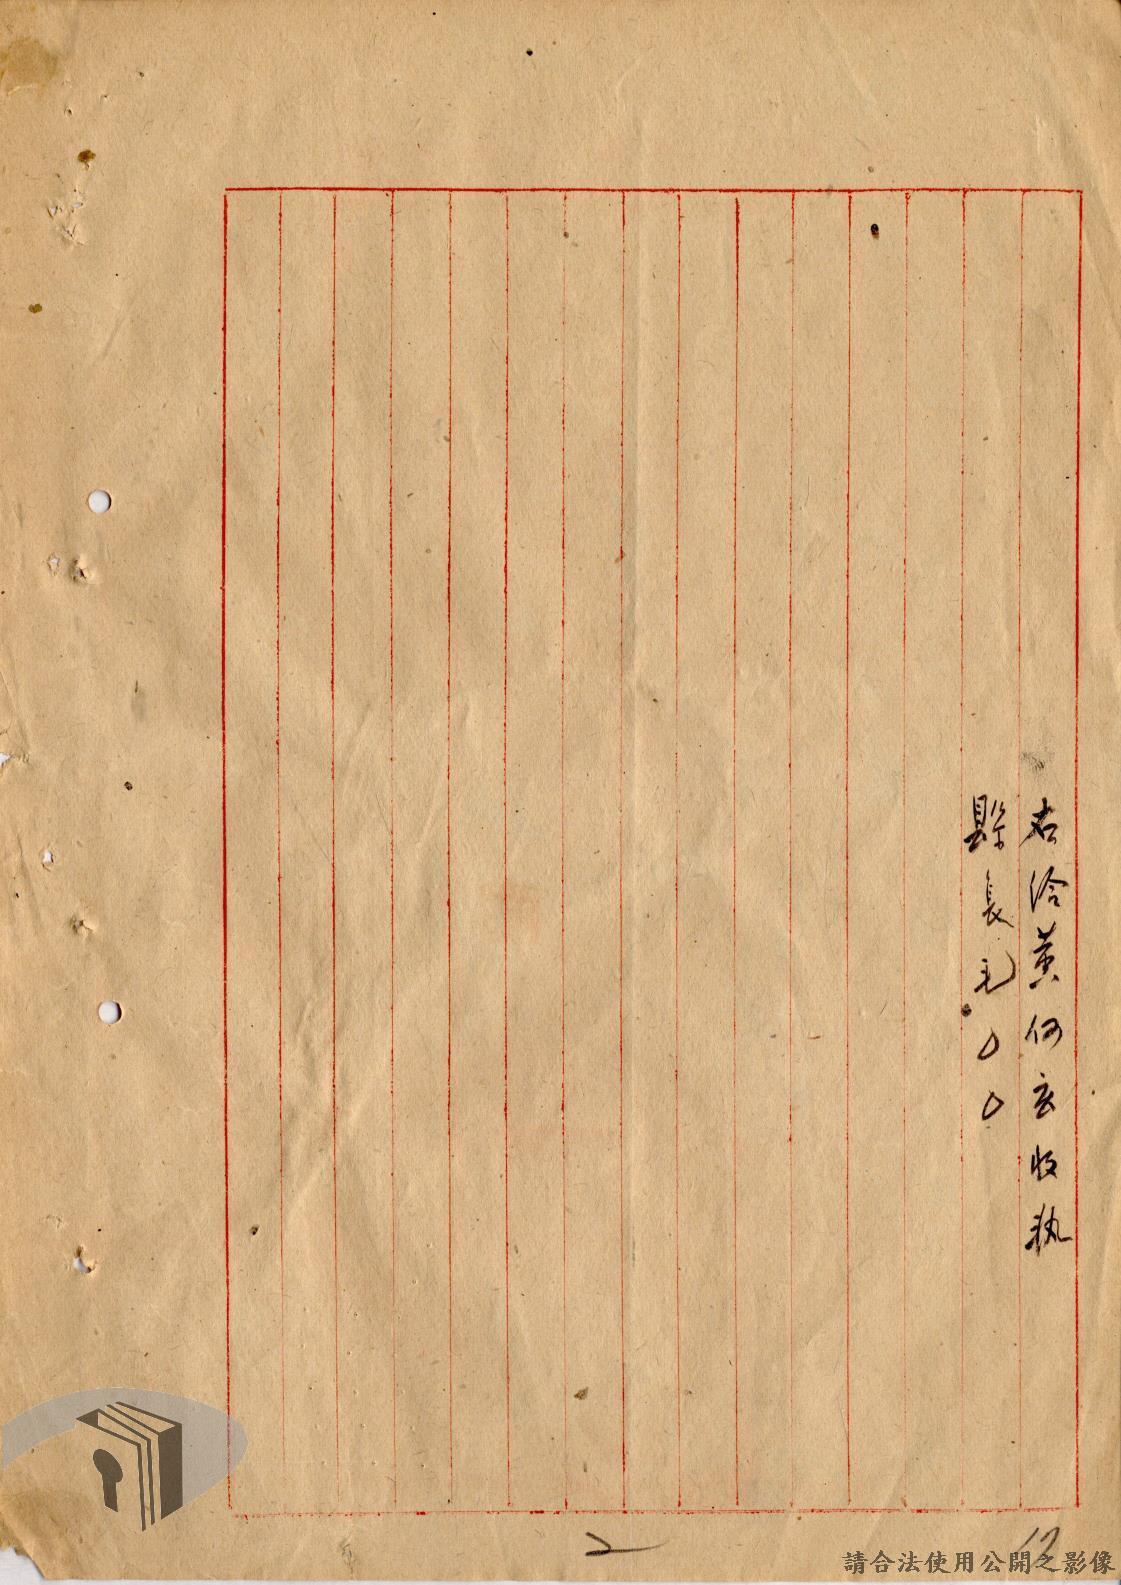 右給黃何玄收執
縣長毛○○
2
12
請合法使用公開之影像